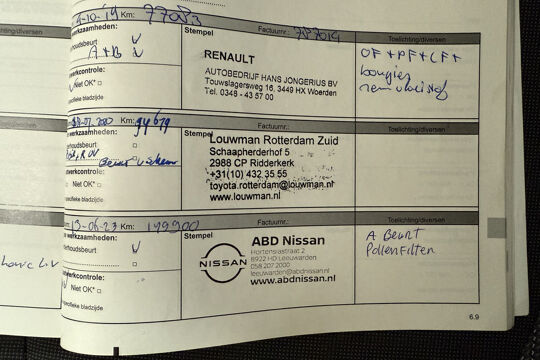 -10-19 Km: 77083 Factuurnr.: Toelichting/diversen
werkzaamheden: Stempel OF + PF + LF +
houdsbeurt V RENAULT bougies
A + B V remvloeistof
werkcontrole: AUTOBEDRIJF HANS JONGERIUS BV
Niet OK* Touwslagersweg 16, 3449 HX Woerden
Tel. 0348 - 43 57 00
specifieke bladzijde
Km: Factuurnr.: Toelichting/diversen
werkzaamheden: Stempel
houdsbeurt Louwman Rotterdam Zuid
Schaapherderhof 5
2988 CP Ridderkerk
werkcontrole: +31(10) 432 35 55
Niet OK* toyota.rotterdam@louwman.nl
specifieke bladzijde www.louwman.nl
13-06-23 Km: 199900 Factuurnr.: Toelichting/diversen
werkzaamheden: Stempel A Beurt
houdsbeurt V ABD Nissan Pollenfilter
Hortensiastraat 2
NISSAN 8922 HD Leeuwarden
werkcontrole: 058 207 2000
Niet OK* leeuwarden@abdnissan.nl
www.abdnissan.nl
specifieke bladzijde
6.9